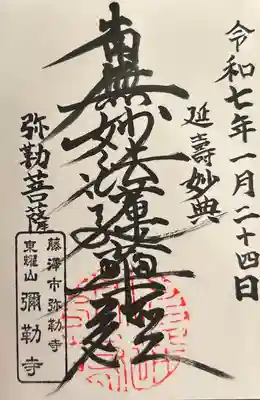 令和七年一月二十四日
延壽妙典
南無妙法蓮華経
弥勒菩薩
藤澤市弥勒寺
東燿山
彌勒寺